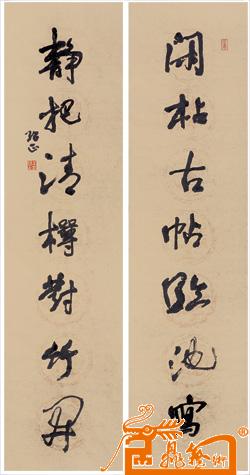 閑拈古帖臨池寫
靜把清樽對竹開